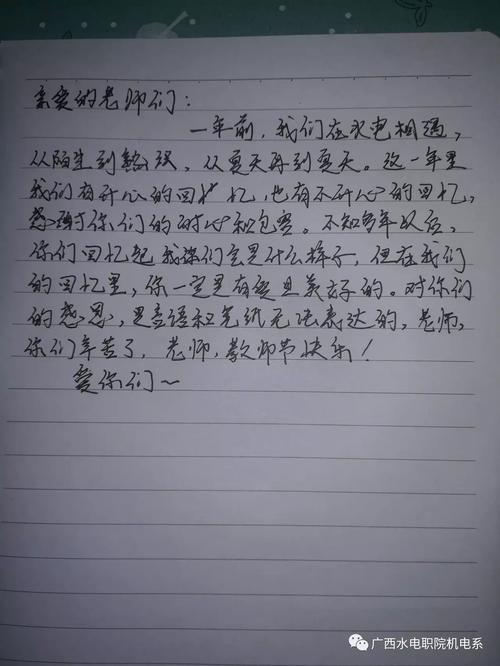 亲爱的老师们：
一年前，我们在水电相遇，
从陌生到熟识，从夏天再到夏天。这一年里
我们有开心的回忆，也有不开心的回忆，
感谢你们的耐心和包容。不知多年以后，
你们回忆起我们会是什么样子，但在我们
的回忆里，你一定是有些且美好的。对你们
的感恩，是言语和笔纸无法表达的，老师，
你们辛苦了，老师，教师节快乐！
爱你们～
广西水电职院机电系